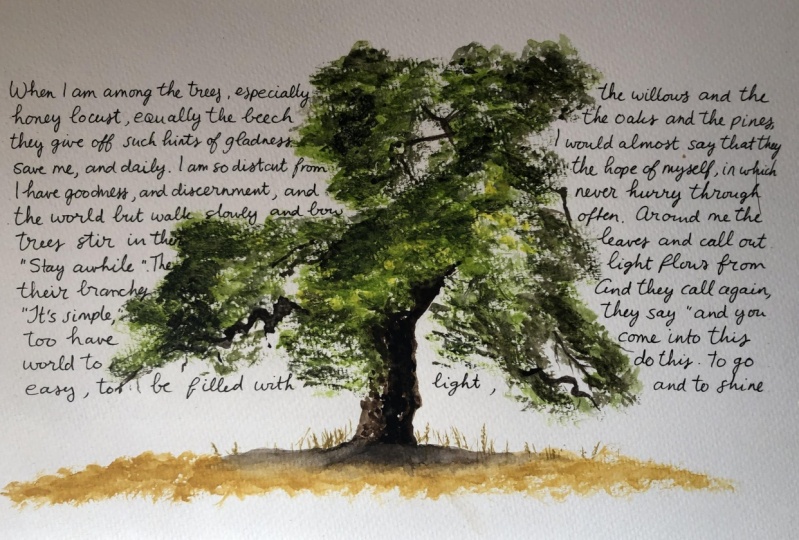 When I am among the trees, especially the willows and the
honey locust, equally the beech the oaks and the pines,
they give off such hints of gladness I would almost say that they
save me, and daily. I am so distant from the hope of myself, in which
I have goodness, and discernment, and never hurry through
the world but walk slowly and bow often. Around me the
trees stir in their leaves and call out
"Stay awhile". The light flows from
their branches And they call again,
"It's simple," they say "and you
too have come into this
world to do this. To go
easy, to be filled with light, and to shine